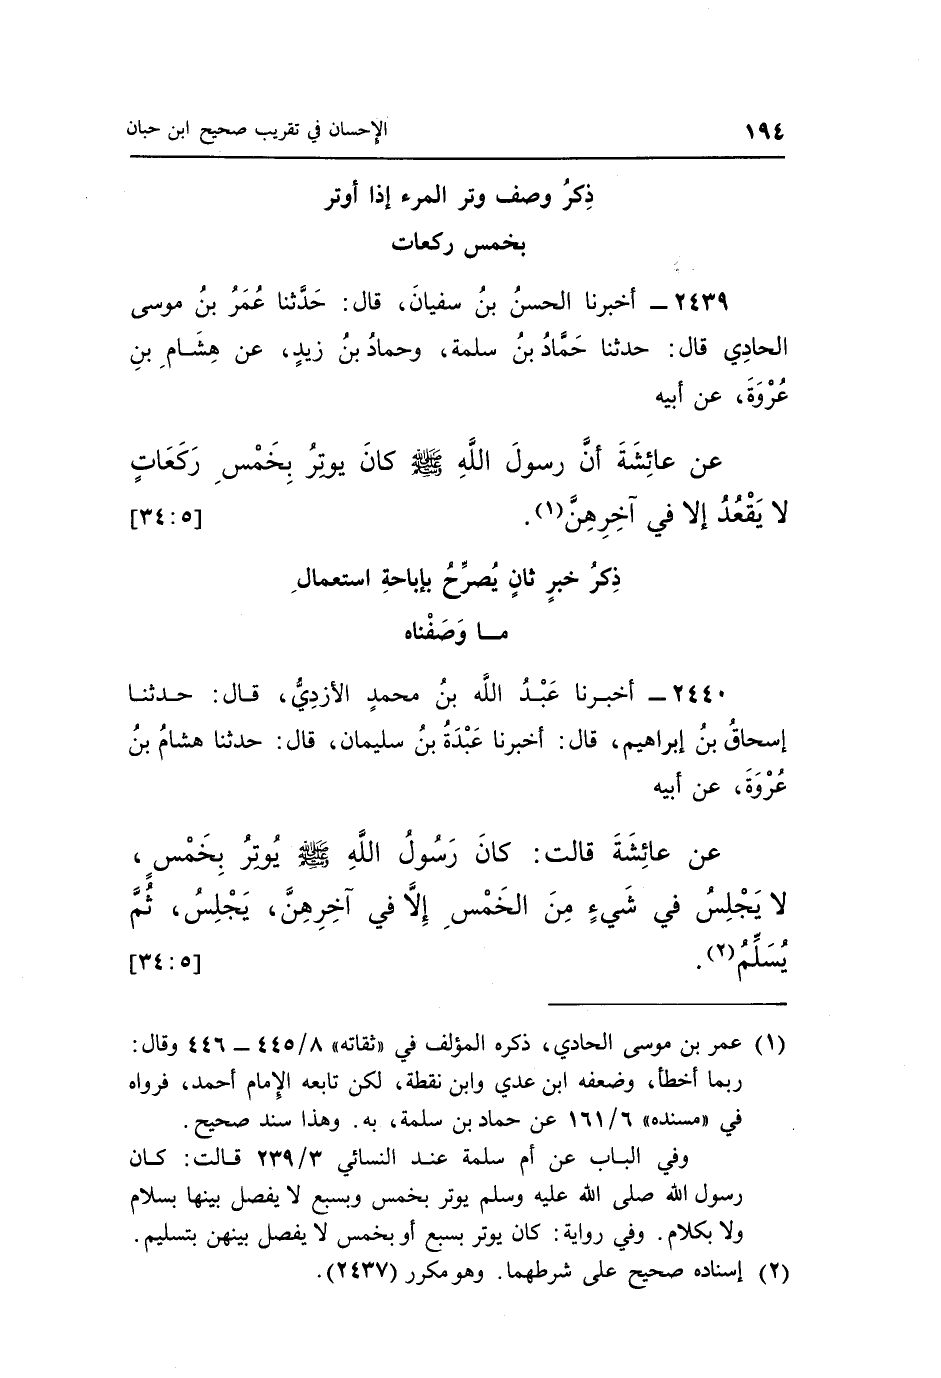 ١٩٤ الإحسان في تقريب صحيح ابن حبان
ذِكرُ وصف وتر المرء إذا أوتر
بخمس ركعات
٢٤٣٩ ــ أخبرنا الحسنُ بنُ سفيانَ، قال: حَدَّثنا عُمَرُ بنُ موسى
الحادِي قال: حدثنا حَمَّادُ بنُ سلمة، وحمادُ بنُ زيدٍ، عن هِشَامِ بنِ
عُرْوَةَ، عن أبيه
عن عائِشَةَ أنَّ رسولَ اللَّهِ ﷺ كانَ يوتِرُ بِخَمْسِ رَكَعَاتٍ
لا يَقْعُدُ إلا في آخِرِهِنَّ(١). [٥:٣٤]
ذِكرُ خبرٍ ثانٍ يُصرِّحُ بإباحةِ استعمالِ
مـا وَصَفْناه
٢٤٤٠ ــ أخبـرنا عَبْـدُ اللَّه بنُ محمدٍ الأزدِيُّ، قـال: حـدثنـا
إسحاقُ بنُ إبراهيم، قال: أخبرنا عَبْدَةُ بنُ سليمان، قال: حدثنا هشامُ بنُ
عُرْوَةَ، عن أبيه
عن عائِشَةَ قالت: كانَ رَسُولُ اللَّهِ ﷺ يُوتِرُ بِخَمْسٍ،
لا يَجْلِسُ في شَيءٍ مِنَ الخَمْسِ إلَّا في آخِرِهِنَّ، يَجْلِسُ، ثُمَّ
يُسَلِّمُ(٢). [٥:٣٤]
(١) عمر بن موسى الحادي، ذكره المؤلف في «ثقاته» ٤٤٥/٨ ــ ٤٤٦ وقال:
ربما أخطأ، وضعفه ابن عدي وابن نقطة، لكن تابعه الإمام أحمد، فرواه
في «مسنده» ١٦١/٦ عن حماد بن سلمة، به. وهذا سند صحيح.
وفي البـاب عن أم سلمة عنـد النسائي ٢٣٩/٣ قـالت: كـان
رسول الله صلى الله عليه وسلم يوتر بخمس وبسبع لا يفصل بينها بسلام
ولا بكلام. وفي رواية: كان يوتر بسبع أو بخمس لا يفصل بينهن بتسليم.
(٢) إسناده صحيح على شرطهما. وهو مكرر (٢٤٣٧).